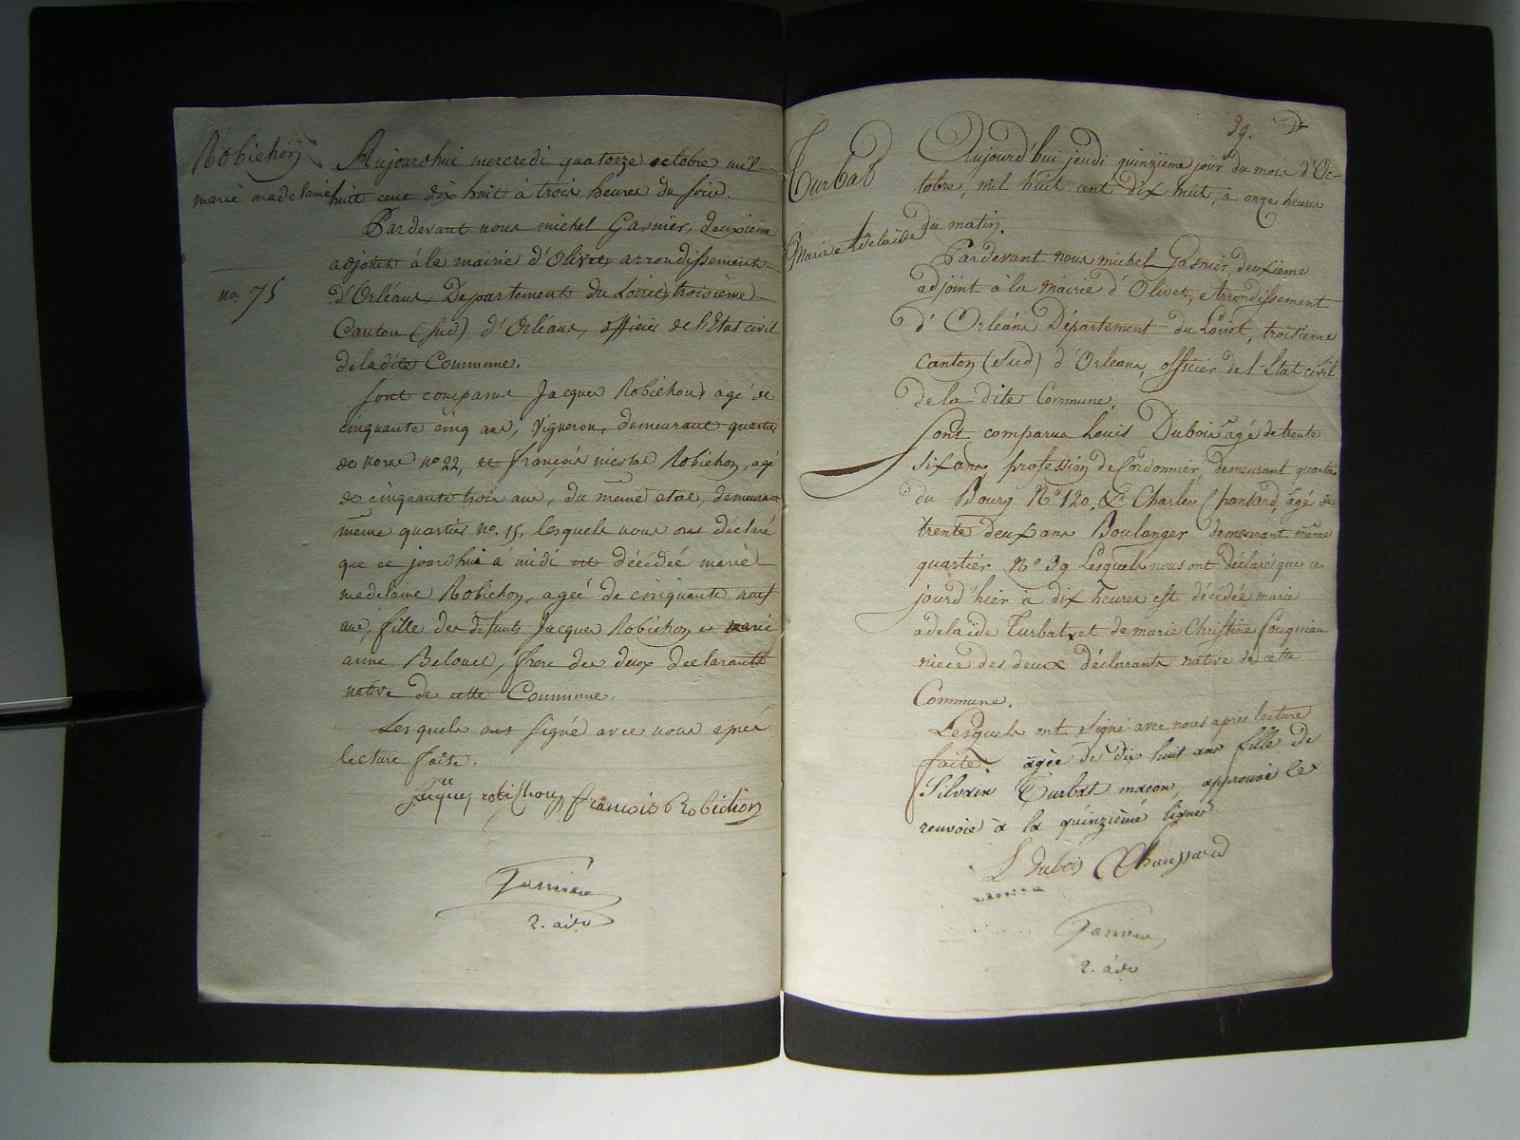 Robichon
marie madelaine
no. 75
Aujourdhui mercredi quatorze octobre mil
huit cent dix huit à trois heures du soir.
Pardevant nous michel Gasnier, deuxième
adjoint à la mairie d'Olivet, arrondissement
d'Orléans, Departement du Loiret, troisième
Canton (sud) d'Orléans, officier de l'Etat civil
de la dite Commune.
sont comparus Jacques Robichon, agé de
cinquante cinq ans, Vigneron, demeurant quartier
de no 22, et françois nicolas Robichon, agé
de cinquante trois ans, du même etat, demeurant
même quartier no. 15, lesquels nous ont déclaré
que ce jourdhui à midi est décédée marie
madelaine Robichon, agée de cinquante neuf
ans, fille des defunts Jacques Robichon et marie
anne Belouet, sœur des deux declarants
native de cette Commune.
Lesquels ont signé avec nous après
lecture faite.
Jacque robichon françois Robichon
Gasnier
2. adj.
39.
Turbat
Marie Adelaïde
Aujourd'hui jeudi quinzième jour du mois d'Oc-
tobre, mil huit cent dix huit, à onze heures
du matin.
Pardevant nous michel Gasnier, deuxieme
adjoint à la mairie d'Olivet, Arrondissement
d'Orléans Département du Loiret, troisieme
canton (Sud) d'Orleans, officier de l'Etat civil
de la dite Commune,
Sont comparus Louis Dubois agé de trente
six ans, profession de Cordonnier, demeurant quartier
du Bourg No. 120, & Charles agé de
trente deux ans Boulanger demeurant même
quartier No. 39 Lesquels nous ont déclaré que ce
jourd'hier à dix heures est décédée marie
adelaïde Turbat, et de marie Christine
niece des deux déclarants native de cette
Commune.
Lesquels ont signé avec nous apres lecture
faite. agée de dix huit ans fille de
Silvain Turbat macon, approuvé le
renvoie à la quinzième ligne
L Dubois Chaussard
Gasnier
2. adj.